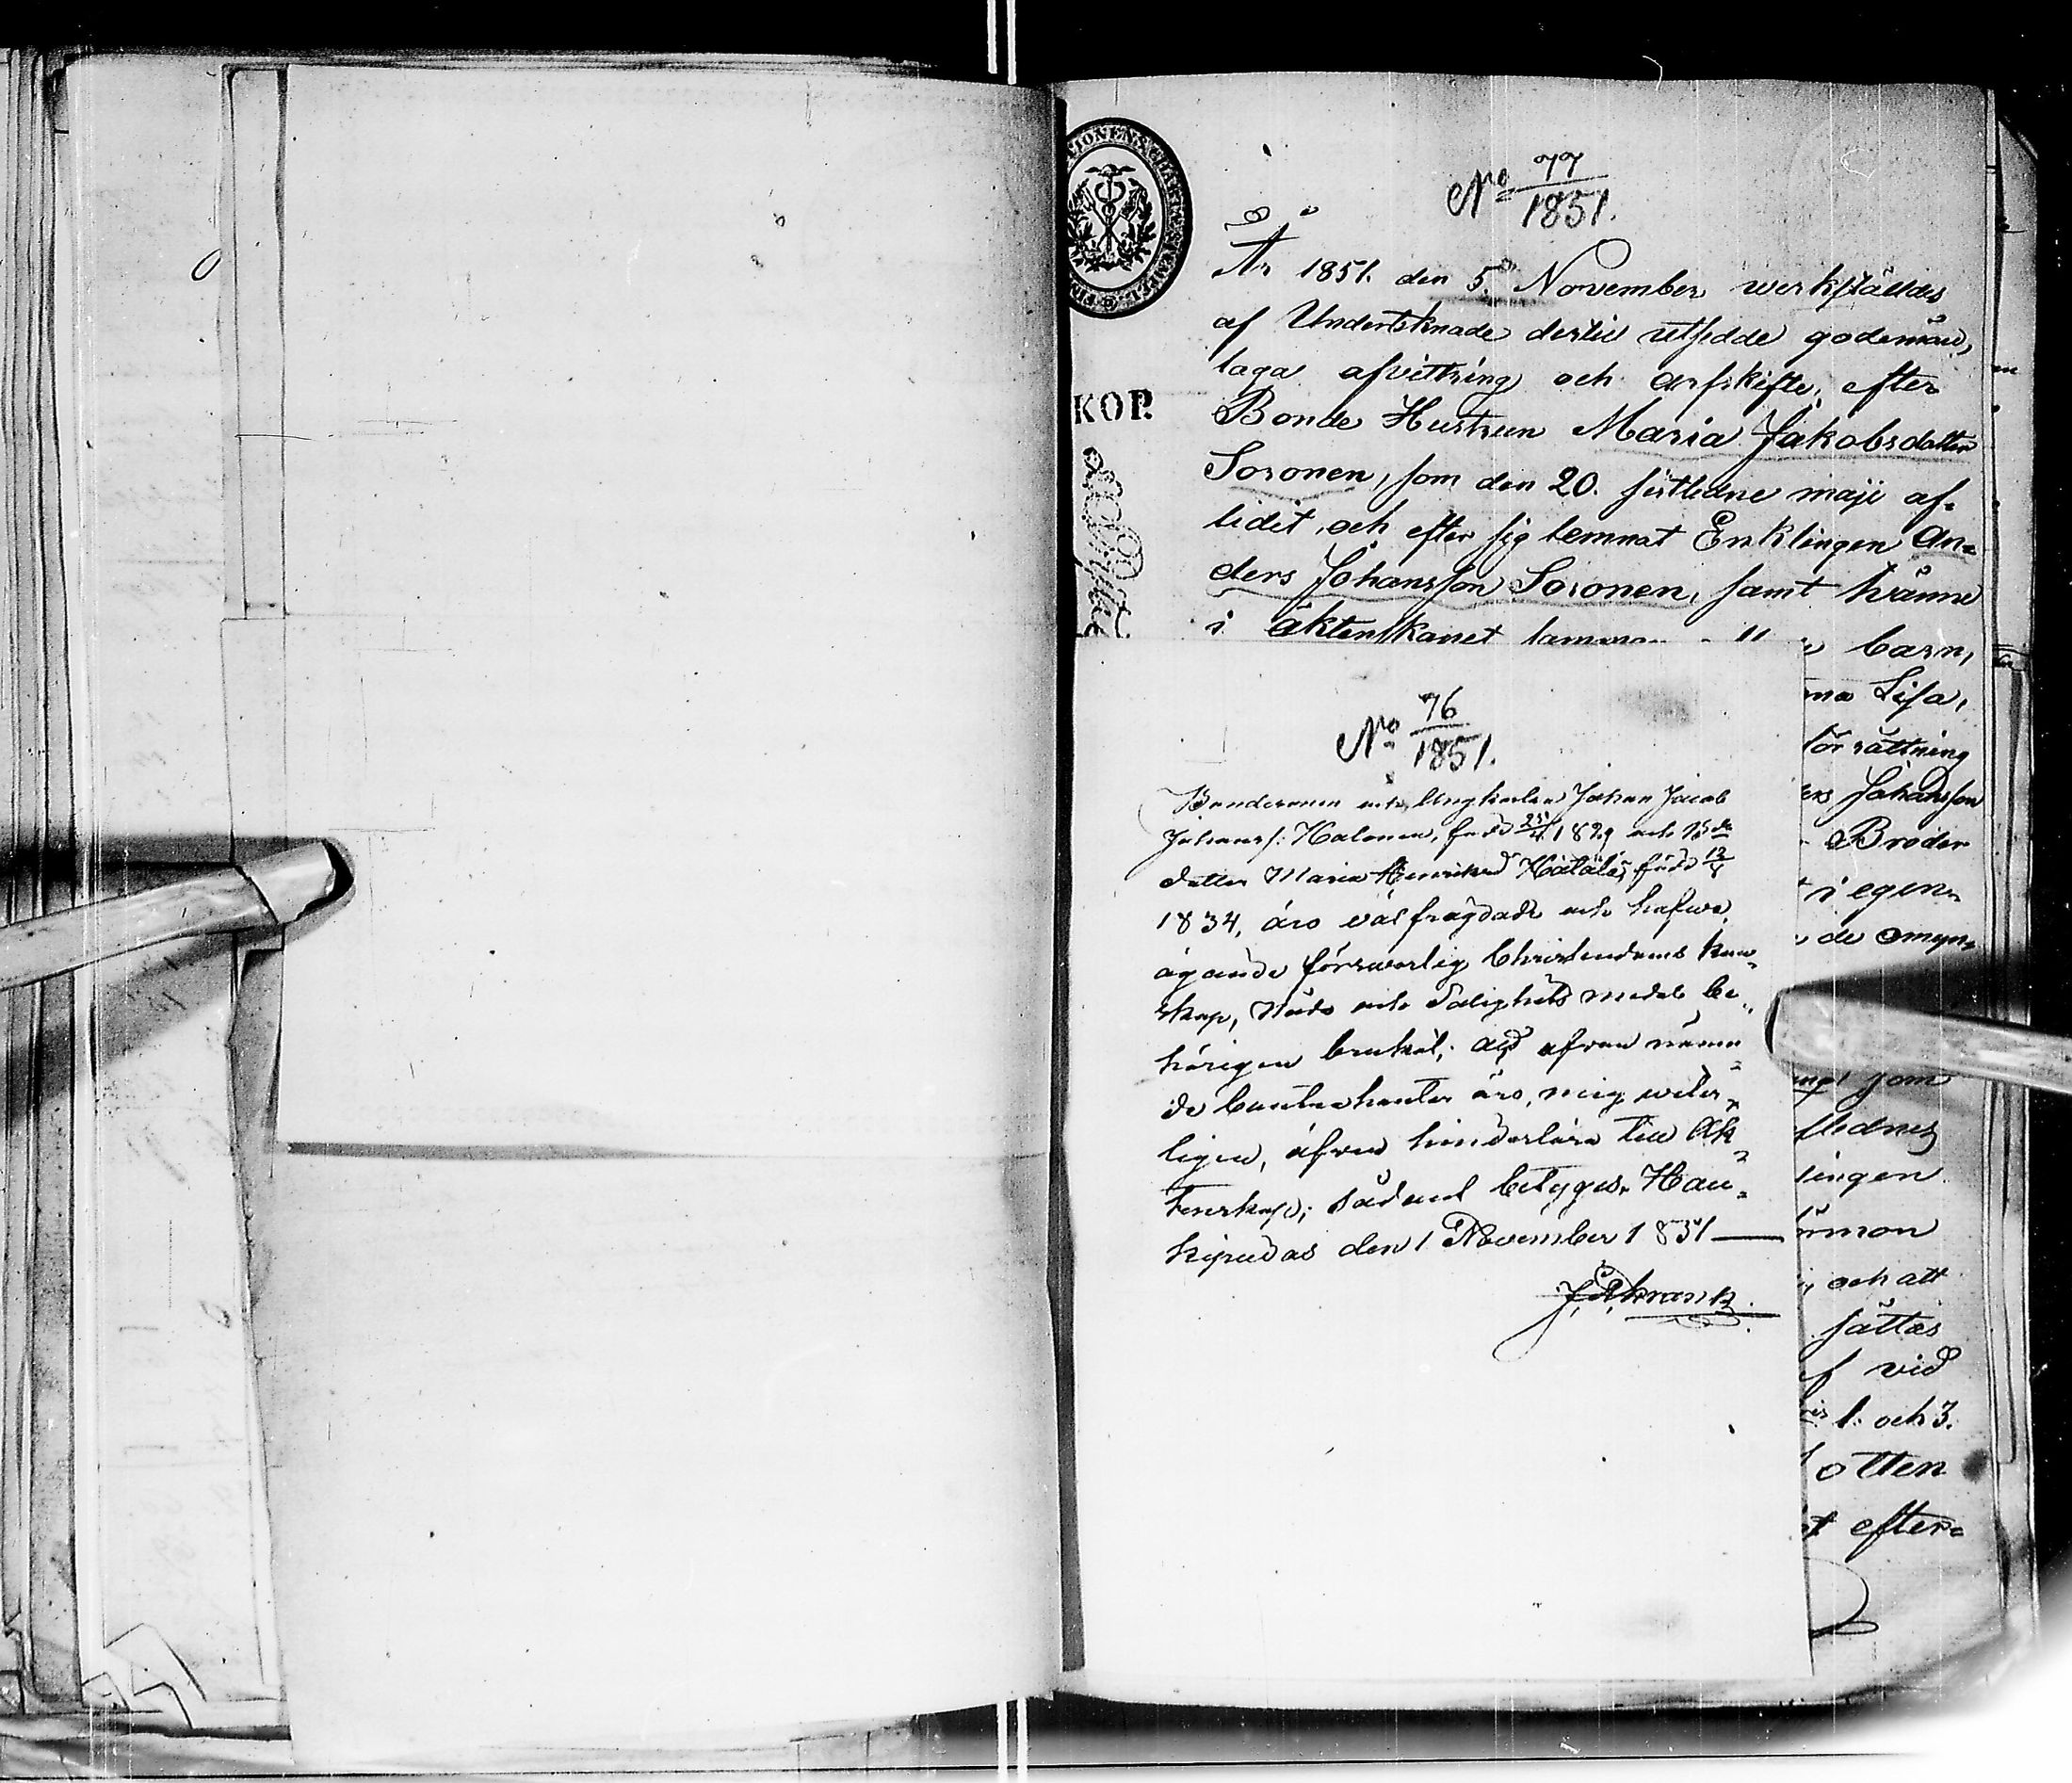 No 77
1851.
År 1851. den 5. November werkställdes
af Underteknade dertill utsedde godemän,
laga afvittring och arfskifte, efter
KOP.
Bonde Hustrun Maria Jakobsdotter
Soronen, som den 20. sistledne maji af-
lidit, och efter sig lemnat Enklingen An-
ders Johansson Soronen, samt hänne
i äktenskapet barn,
Lisa,
förrättning
Johansson
Broder
i egen-
de omyn-
som
ingen
och att
sättas
af vid
1. och 3.
otten
efter-
No 76
1851.
Bondesonen och Ungkarlen Johan Jacob
Johanss: Halonen, född 25/4 1829 och Bde
dotter Maria Henriksd född 12/8
1834, äro välfrägdade och hafwa,
ägande förswarlig Christendoms kun-
skap, Nåds och Salighets medel be-
hörigen brukat; af ofvan nämn-
de Contrahenter äro, mig veter-
ligen, äfven hinderlöse till Äk-
tenskap; sådant betygas. Hau-
kipudas den 1 November 1851